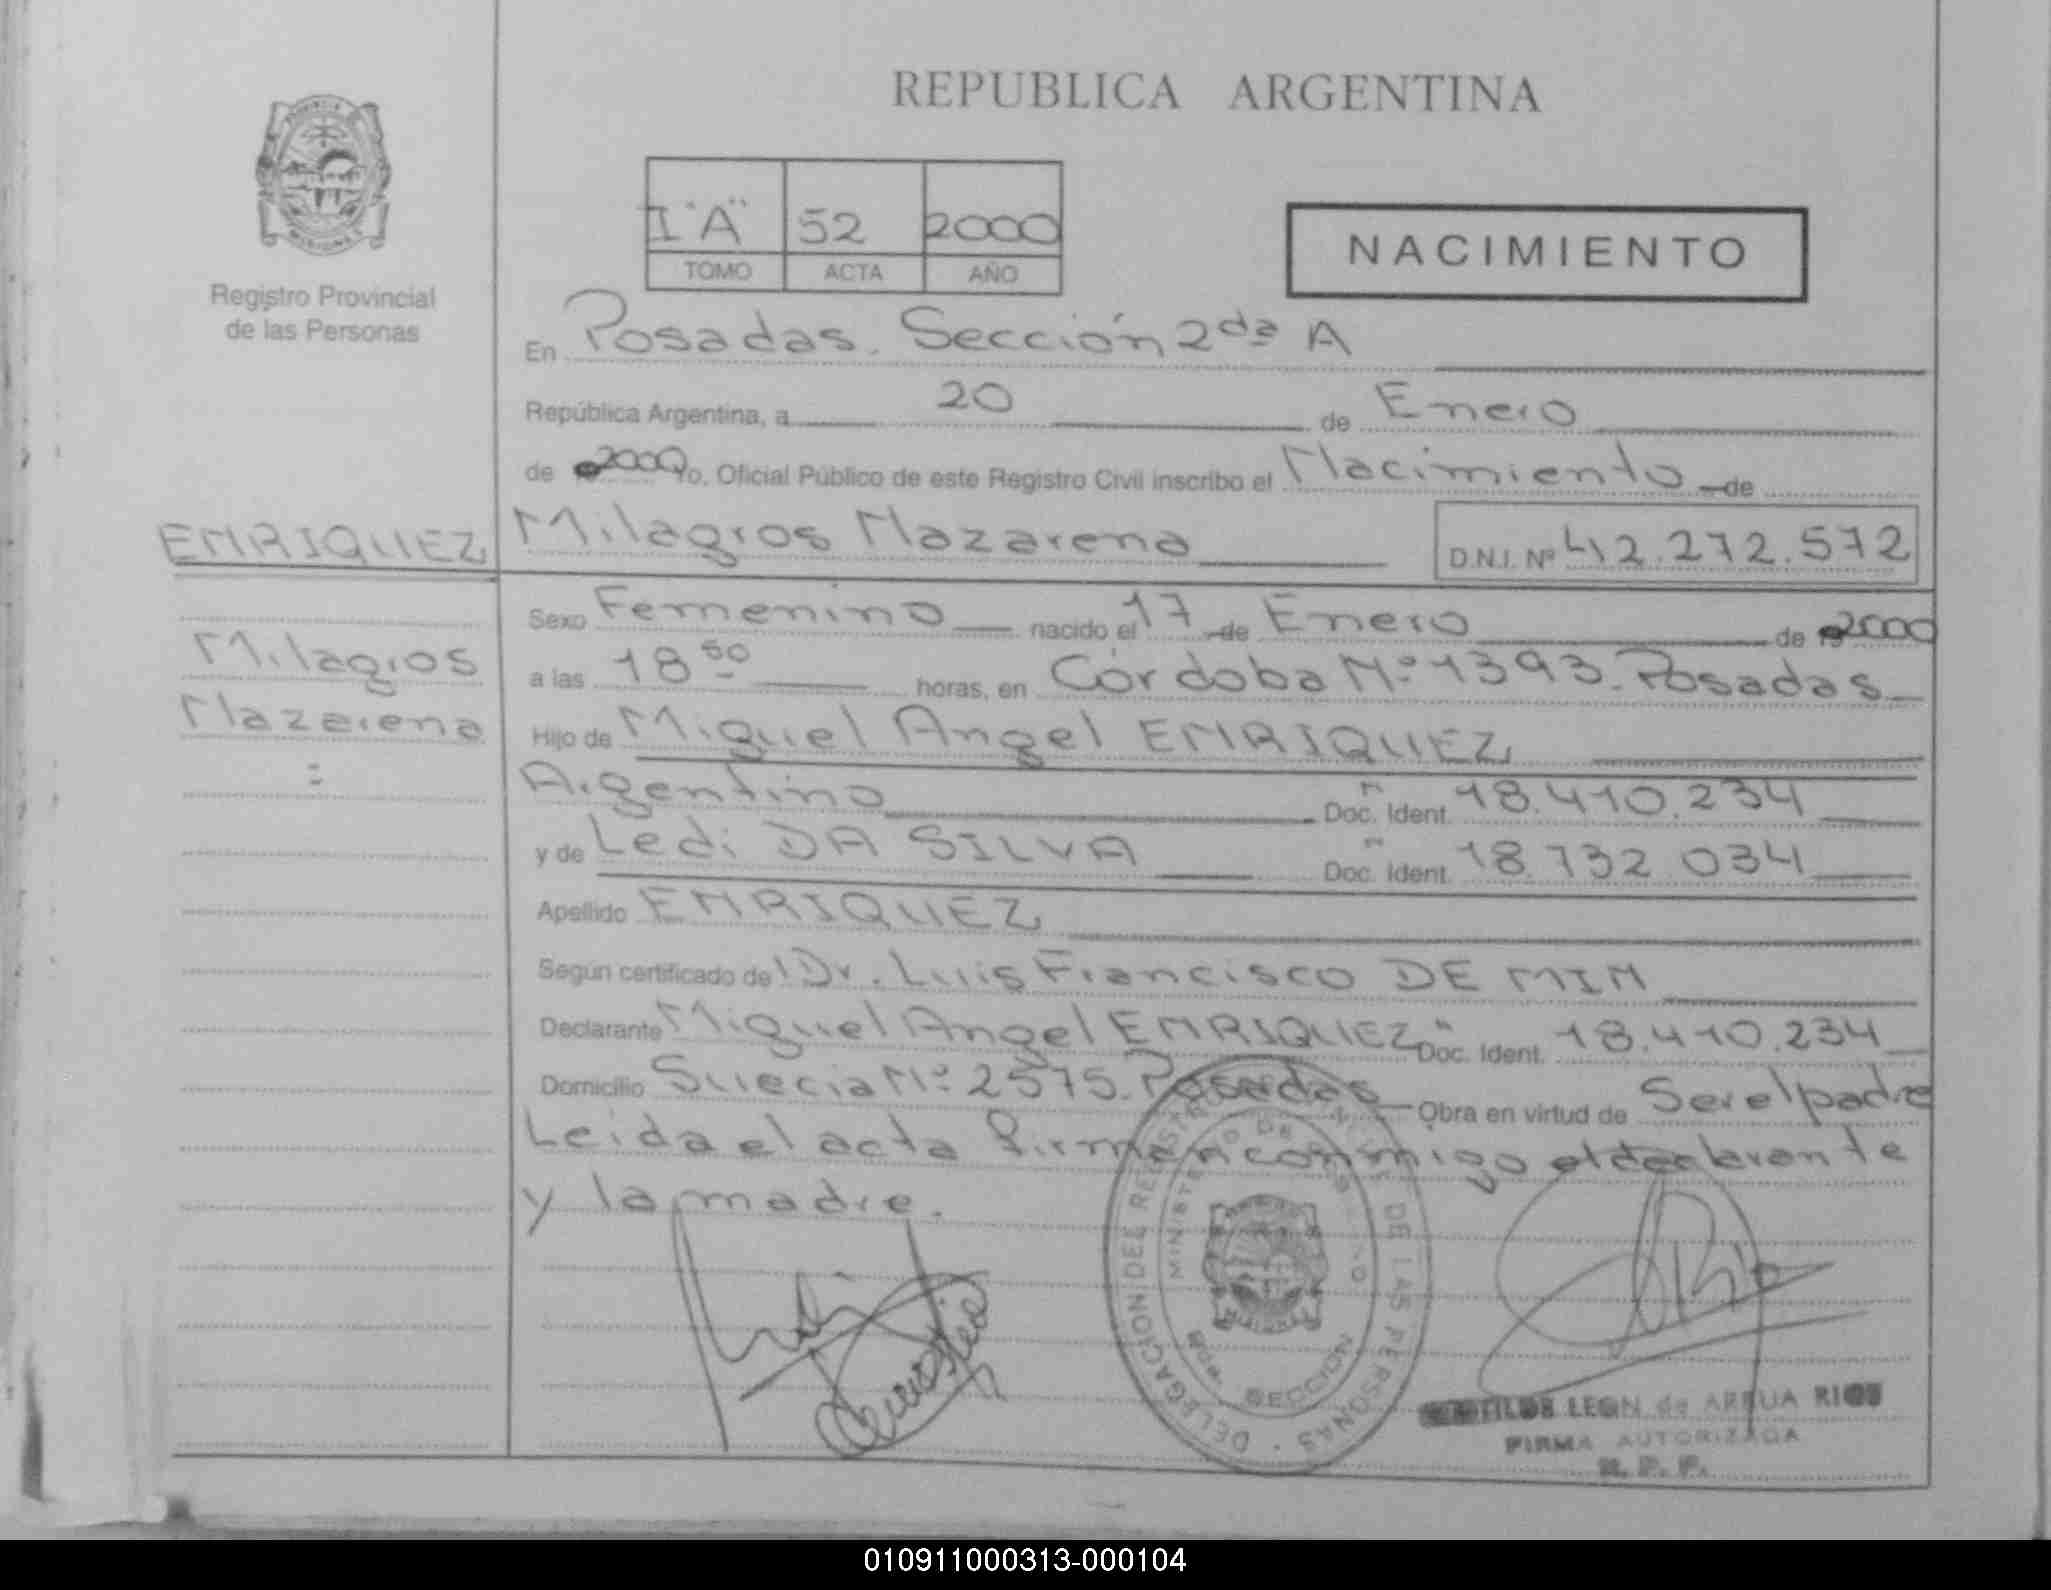 REPUBLICA ARGENTINA
Registro Provincial
de las Personas
I "A" 52 2000
TOMO ACTA AÑO
NACIMIENTO
En Posadas. Sección 2da A
República Argentina, a 20 de Enero
de 2000 Yo, Oficial Público de este Registro Civil inscribo el Nacimiento de
ENRIQUEZ Milagros Nazarena D.N.I. Nº 42.272.572
Milagros
Nazarena
Sexo Femenino nacido el 17 de Enero de 2000
a las 18 50 horas, en Córdoba Nº 1393. Posadas
Hijo de Miguel Angel ENRIQUEZ
Argentino Doc. Ident. 18.410.234
y de Ledi DA SILVA Doc. Ident. 18.732.034
Apellido ENRIQUEZ
Según certificado de Dr. Luis Francisco DE MIN
Declarante Miguel Angel ENRIQUEZ Doc. Ident. 18.410.234
Domicilio Suecia Nº 2575. Posadas Obra en virtud de Ser el padre
Leida el acta firman conmigo el declarante
y la madre.
DELEGACION DEL REGISTRO DE LAS PERSONAS
MINISTERIO DE GOBIERNO
2da. SECCION
MISIONES
LEON de ARRUA RIOS
FIRMA AUTORIZADA
R. P. P.
010911000313-000104